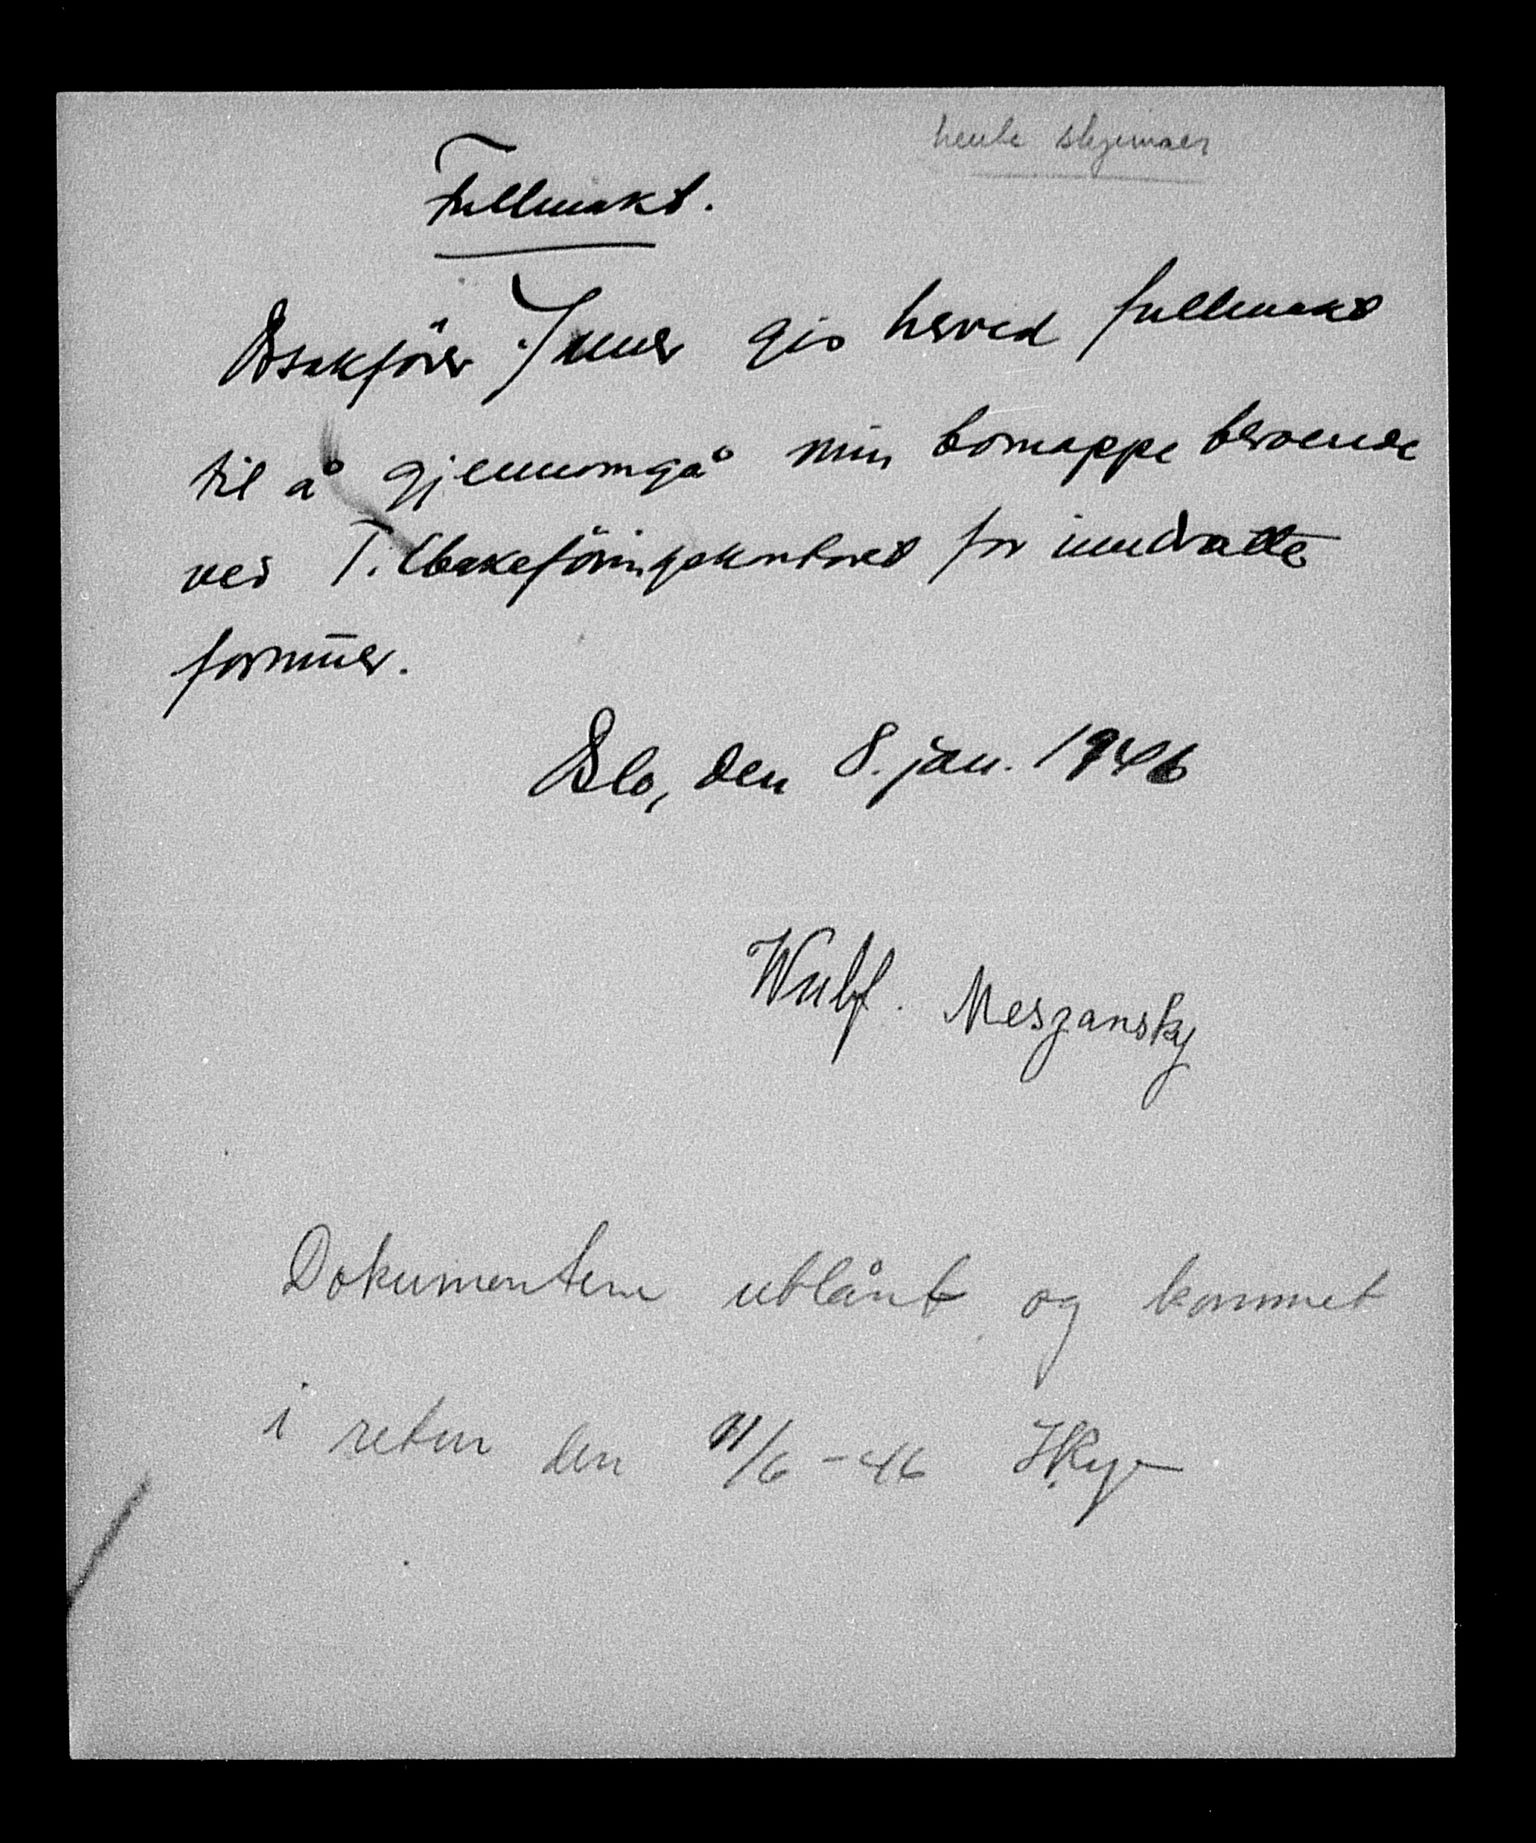 Fullmakt.
gis herved fullmakt
til å gjennomgå min bomappe beroende
ved Tilbakeföringskontoret for inndratte
formuer.
Oslo, den 8. jan. 1946
Wulf. Meszansky
Dokumentene utlånt og kommet
i retur den 11/6-46